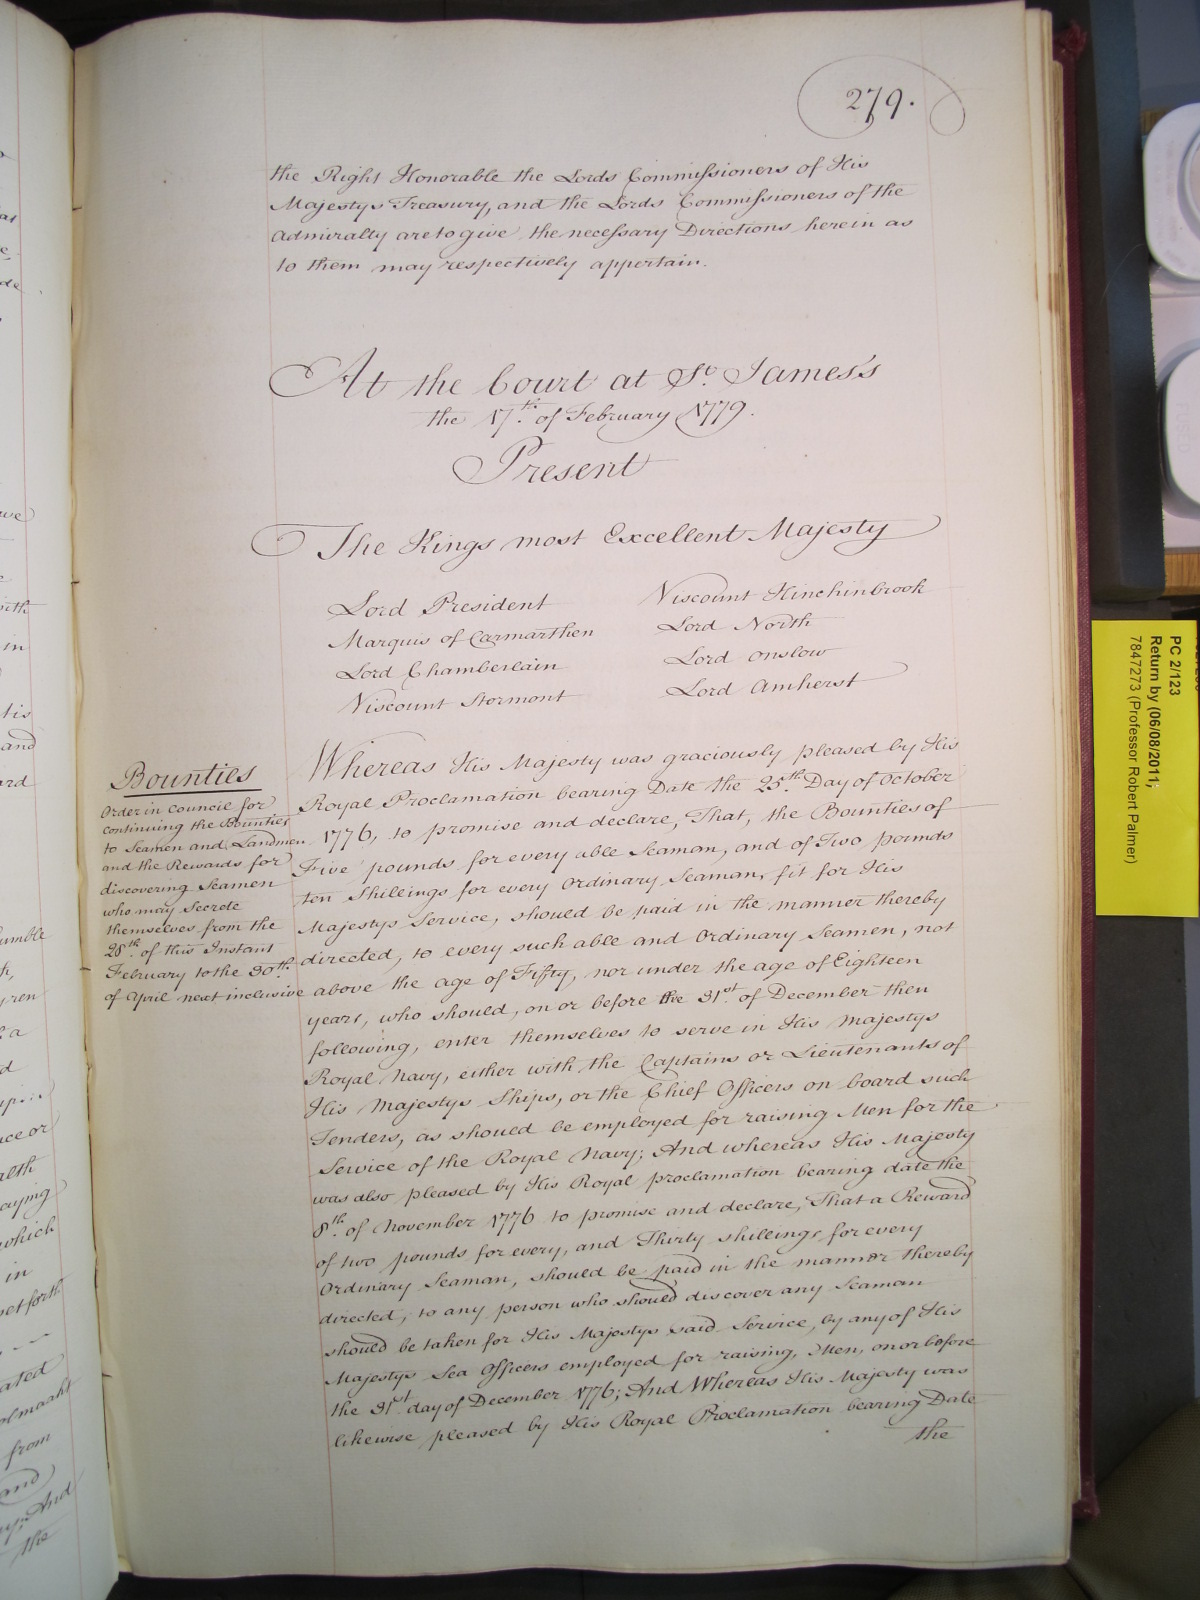 279.
the Right Honorable the Lords Commissioners of His
Majestys Treasury, and the Lords Commissioners of the
Admiralty are to give the necessary Directions herein as
to them may respectively appertain.
At the Court at St. James's
the 17th. of February 1779.
Present
The Kings most Excellent Majesty
Lord President
Marquis of Carmarthen
Lord Chamberlain
Viscount Stormont
Viscount Hinchinbrook
Lord North
Lord Onslow
Lord Amherst
Bounties
Order in Council for
continuing the Bounties
to Seamen and Landmen
and the Rewards for
discovering Seamen
who may Secrete
themselves from the
28th. of this Instant
February to the 30th.
of April next inclusive
Whereas His Majesty was graciously pleased by His
Royal Proclamation bearing Date the 25th. Day of October
1776, to promise and declare, That, the Bounties of
Five pounds for every able Seaman, and of Two pounds
ten Shillings for every Ordinary Seaman, fit for His
Majestys Service, should be paid in the manner thereby
directed, to every such able and Ordinary Seamen, not
above the age of Fifty, nor under the age of Eighteen
years, who should, on or before the 31st. of December then
following, enter themselves to serve in His Majestys
Royal Navy, either with the Captains or Lieutenants of
His Majestys Ships, or the Chief Officers on board such
Tenders, as should be employed for raising Men for the
Service of the Royal Navy; And whereas His Majesty
was also pleased by His Royal proclamation bearing date the
8th. of November 1776 to promise and declare, That a Reward
of two pounds for every, and Thirty shillings for every
Ordinary Seaman, should be paid in the manner thereby
directed, to any person who should discover any Seaman
should be taken for His Majestys said Service, by any of His
Majestys Sea Officers employed for raising, Men, on or before
the 31st. day of December 1776; And Whereas His Majesty was
likewise pleased by His Royal Proclamation bearing Date
the
PC 2/123
Return by (06/08/2011;
7847273 (Professor Robert Palmer)